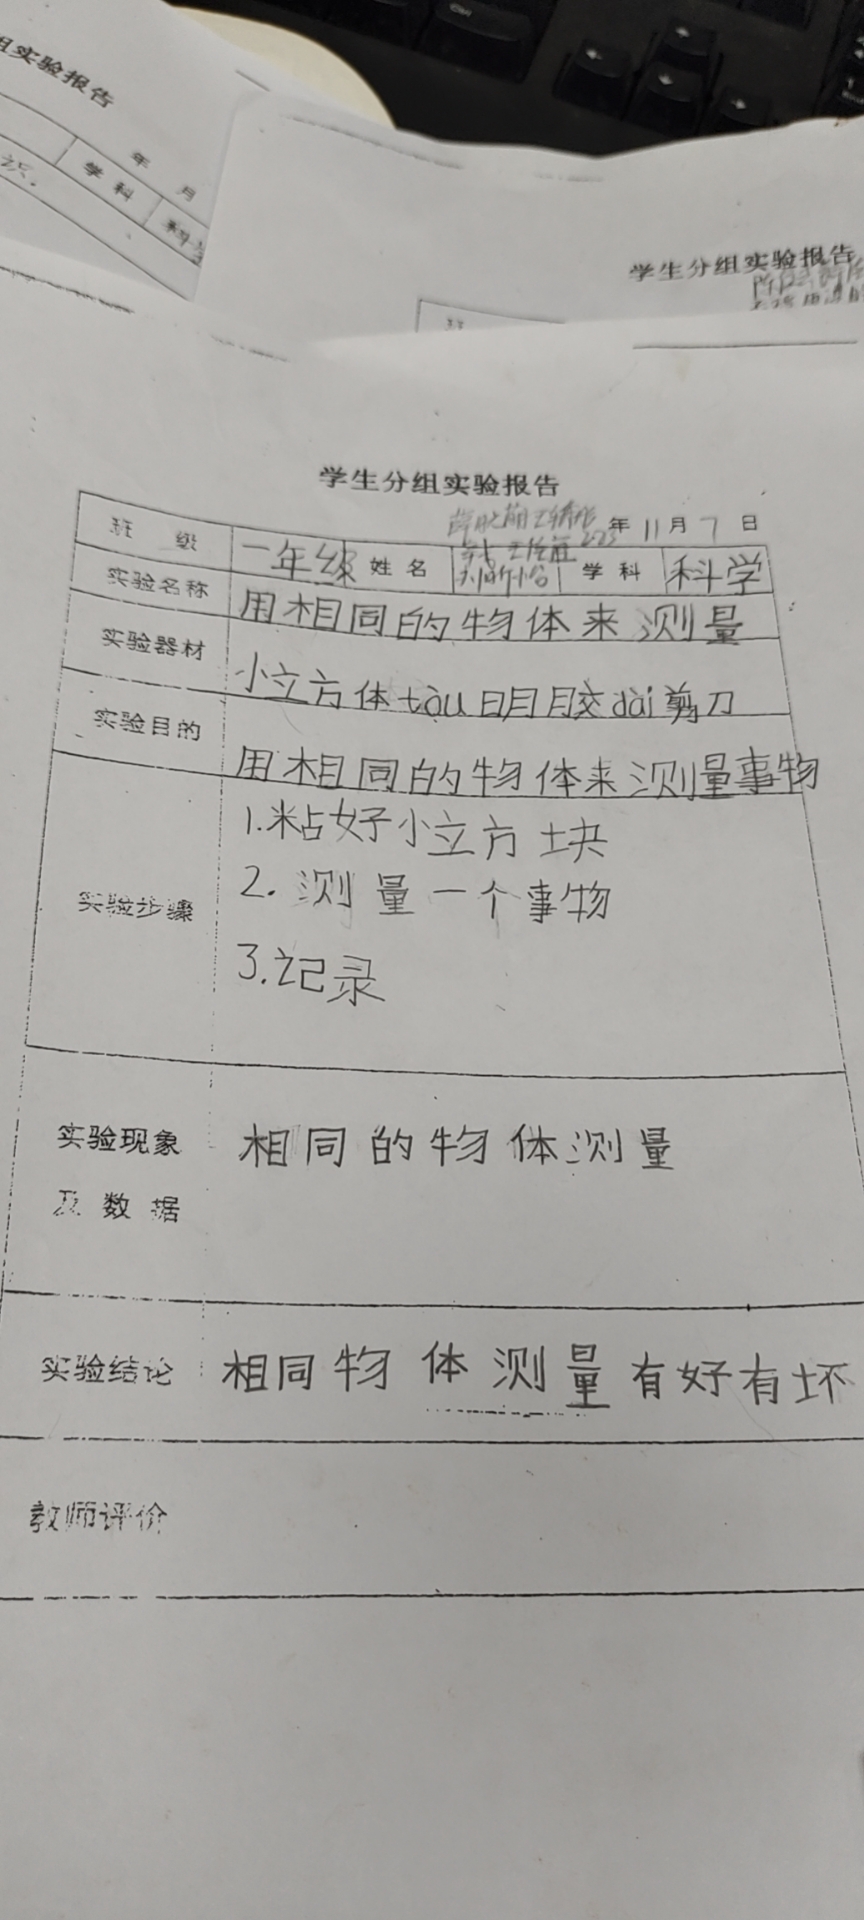 组实验报告
年 月
学 科
识.
学生分组实验报告
班
学生分组实验报告
年 11 月 7 日
班 级 一年级 姓 名 学 科 科学
实验名称 用相同的物体来测量
实验器材 小立方体 tòu明胶dài剪刀
实验目的 用相同的物体来测量事物
实验步骤
1.粘好小立方块
2.测量一个事物
3.记录
实验现象 相同的物体测量
及 数 据
实验结论 相同物体测量有好有坏
教师评价